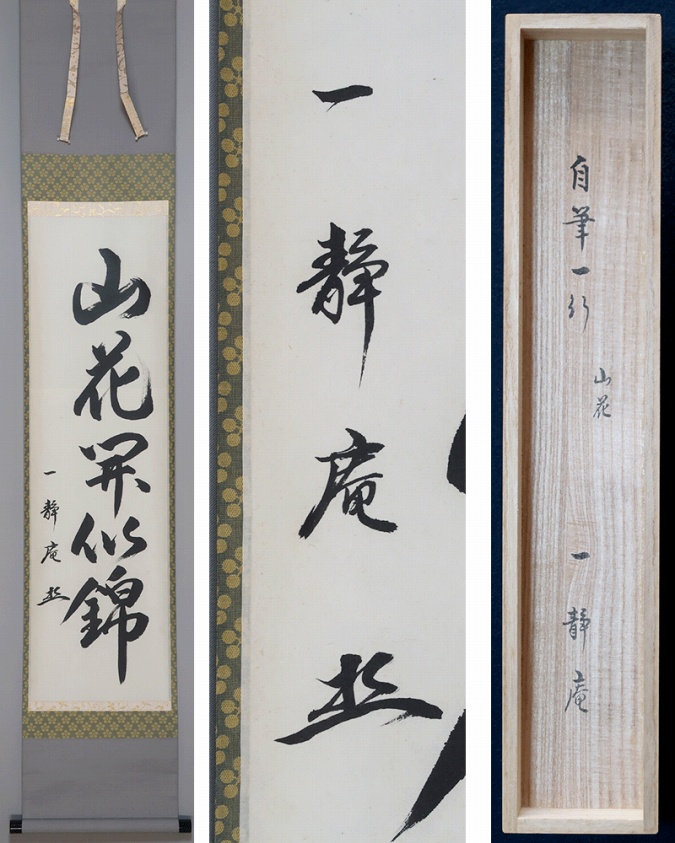 山花開似錦
一静庵
一静庵
自筆一行
山花
一静庵